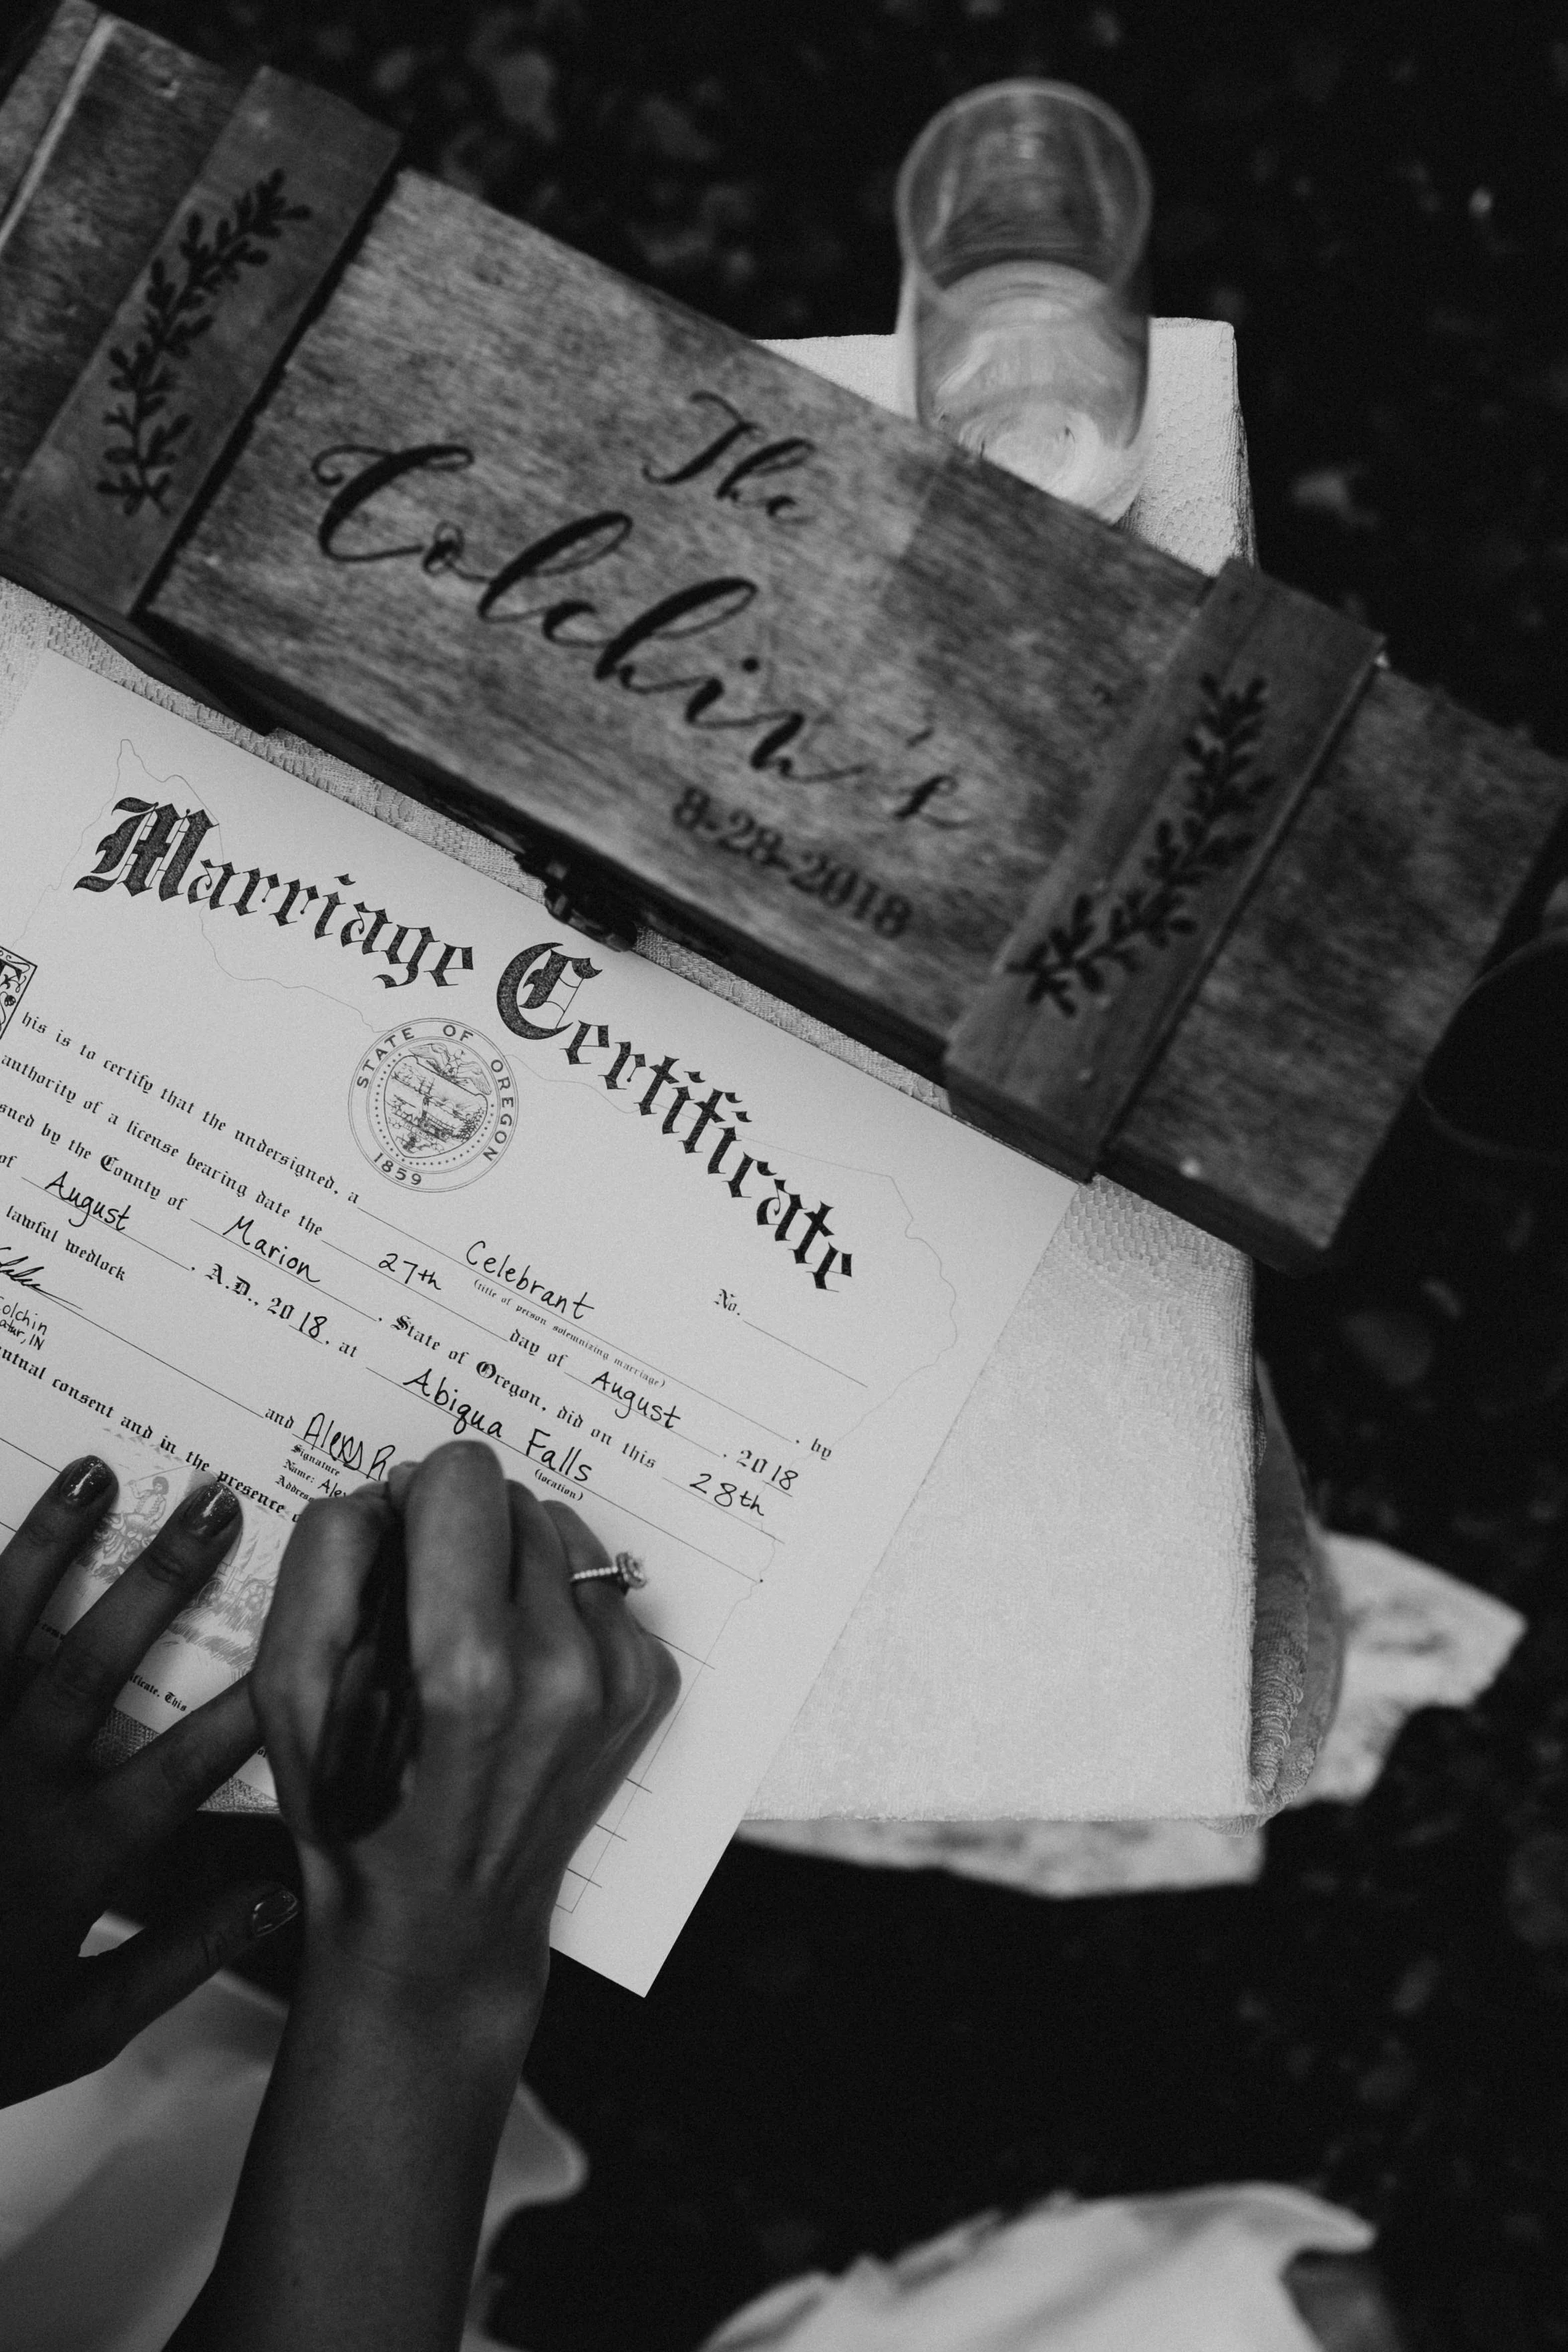 The
Colchin's
8-28-2018
Marriage Certificate
STATE OF OREGON
1859
No.
his is to certify that the undersigned, a Celebrant , by
(title of person solemnizing marriage)
authority of a license bearing date the 27th day of August , 2018
by the County of Marion , State of Oregon, did on this 28th
of August , A.D., 2018, at Abiqua Falls
(location)
lawful wedlock
and Alexys R
Colchin
IN
Signature
Name:
consent and in the presence
This